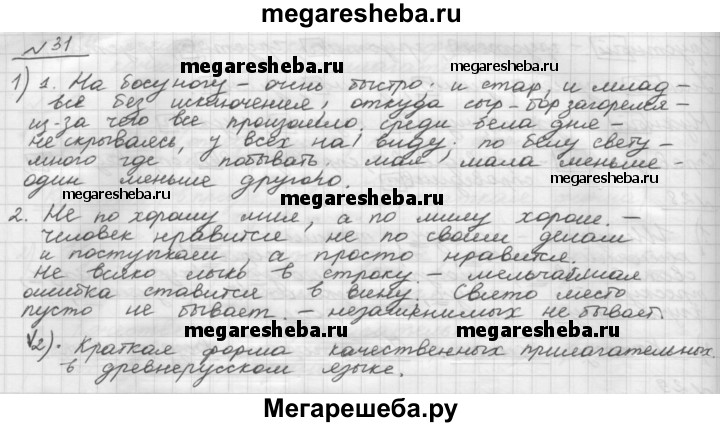 megaresheba.ru
№ 31
1) 1. На босу ногу – очень быстро; и стар, и млад –
megaresheba.ru megaresheba.ru
все без исключения, откуда сыр-бор загорелся –
из-за чего все произошло, среди бела дня –
не скрываясь, у всех на виду; по белу свету –
много где побывать. мал, мала меньше –
megaresheba.ru megaresheba.ru
один меньше другого.
2. Не по хорошу мил, а по милу хорош. –
человек нравится не по своим делам
и поступкам, а просто нравится.
Не всяко лыко в строку – мельчайшая
ошибка ставится в вину. Свято место
пусто не бывает. – незаменимых не бывает.
megaresheba.ru megaresheba.ru
2). Краткая форма качественных прилагательных.
в древнерусском языке.
Мегарешеба.ру